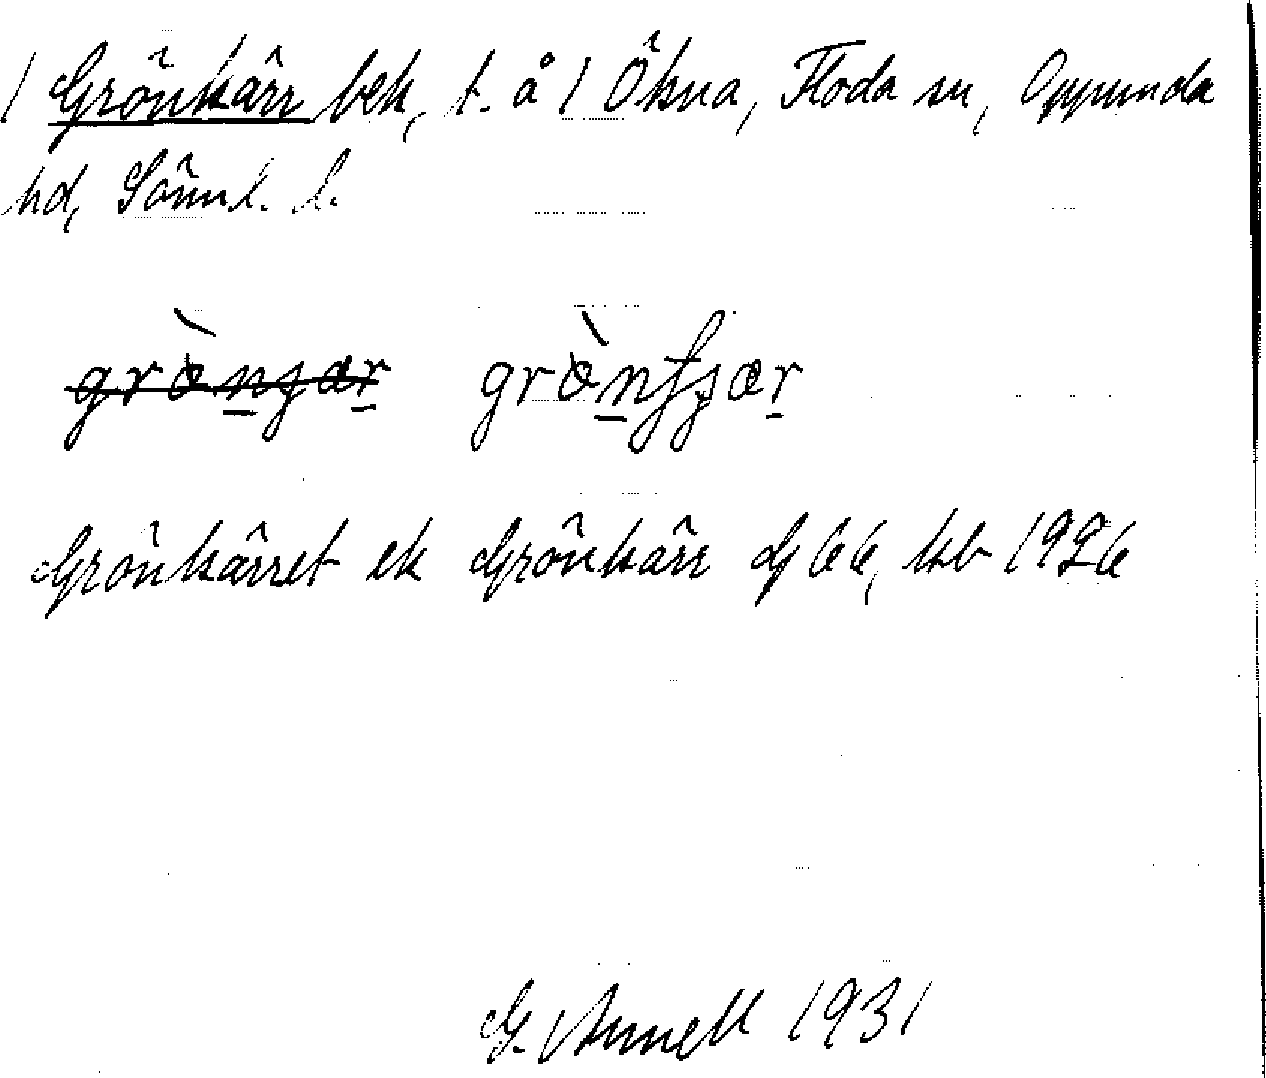 1 Grönkärr bek, t. å 1 Ökna, Floda sn, Oppunda
hd, Sörml. l.
grònfjær
Grönkärret ek Grönkärr G 66, kb 1926
G. Annell 1931